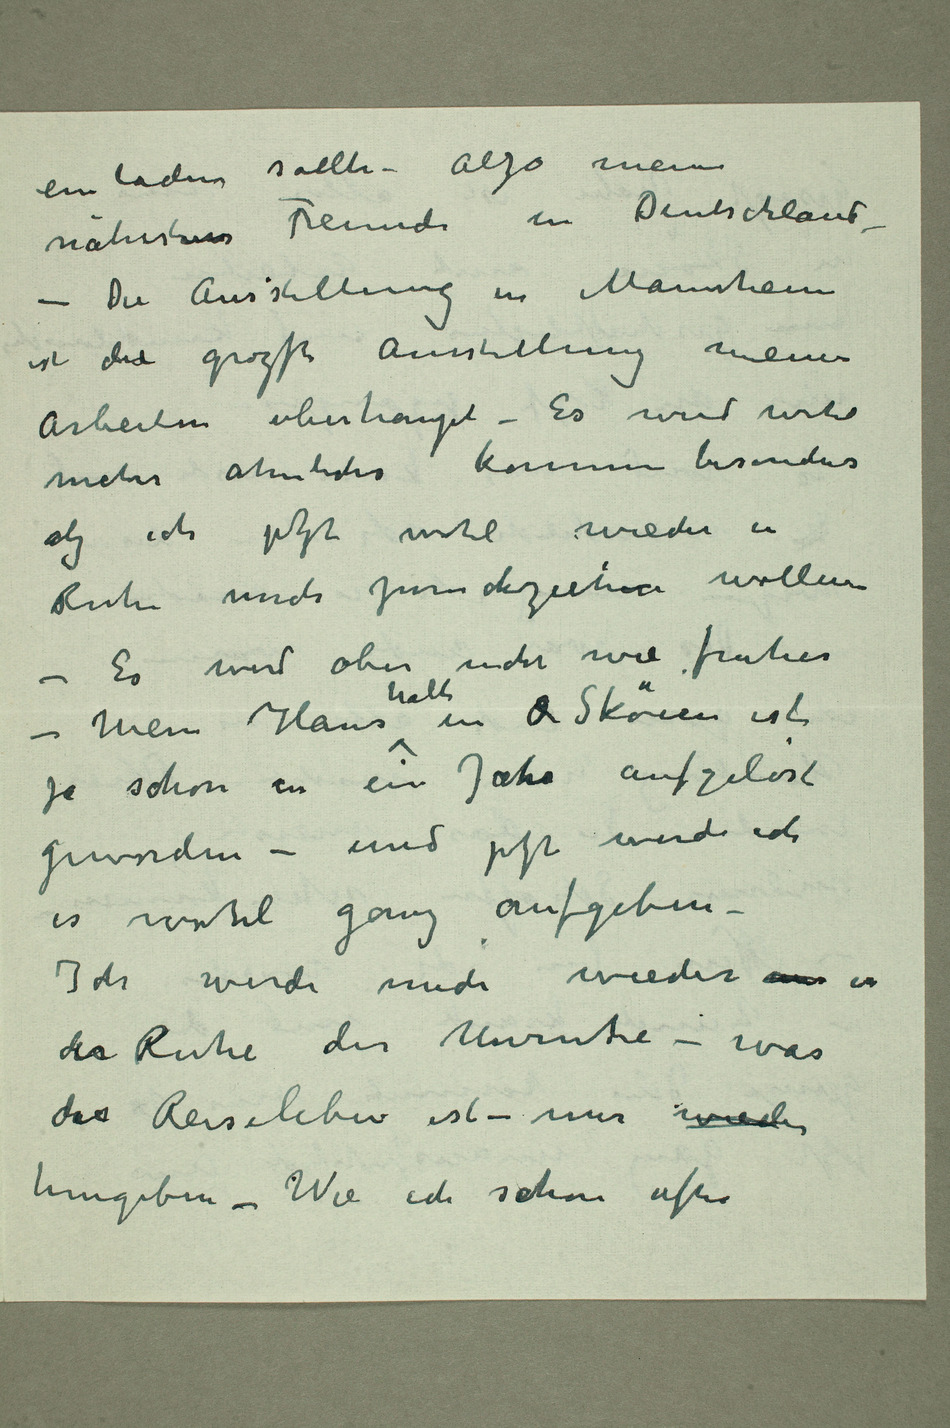 einladen sollte – also meine
nähsten Freunde in Deutschland –
– Die Ausstellung in Mannheim
ist die grosste Ausstellung meiner
Arbeiten uberhaupt – Es wird wohl
mehr ahnliches kommen besonders
als ich jetzt wohl wieder in
Ruhe mich zuruckziehen wollen
– Es wird aber nicht wie fruher
halb
– Mein Haus in Sköien ist
ja schon in ein Jahr aufgelöst
geworden – und jetzt werde ich
es wohl ganz aufgeben –
Ich werde mich wieder in
der Ruhe der Unruhe – was
das Reiseleben ist – mir wieder
hingeben – Wie ich schon ofter